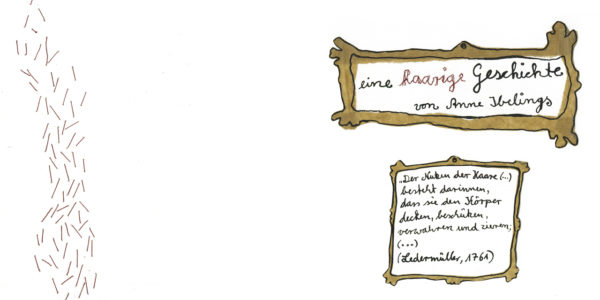 eine haarige Geschichte
von Anne Ibelings
„Der Nutzen der Haare (...)
besteht darinnen,
dass sie den Körper
decken, beschützen,
verwahren und zieren;
(...)
(Ledermüller, 1761)